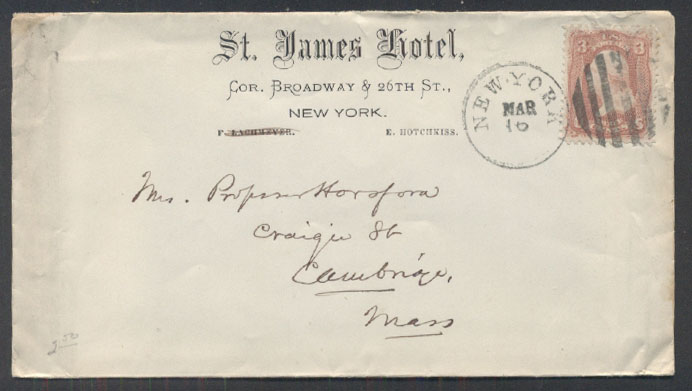 St. James Hotel,
Cor. Broadway & 26th St.,
NEW YORK.
F. LACHMEYER. E. HOTCHKISS.
NEW·YORK
MAR
16
3 U.S. 3
Mrs. Professor Horsford
Craigie St
Cambridge,
Mass
2.50